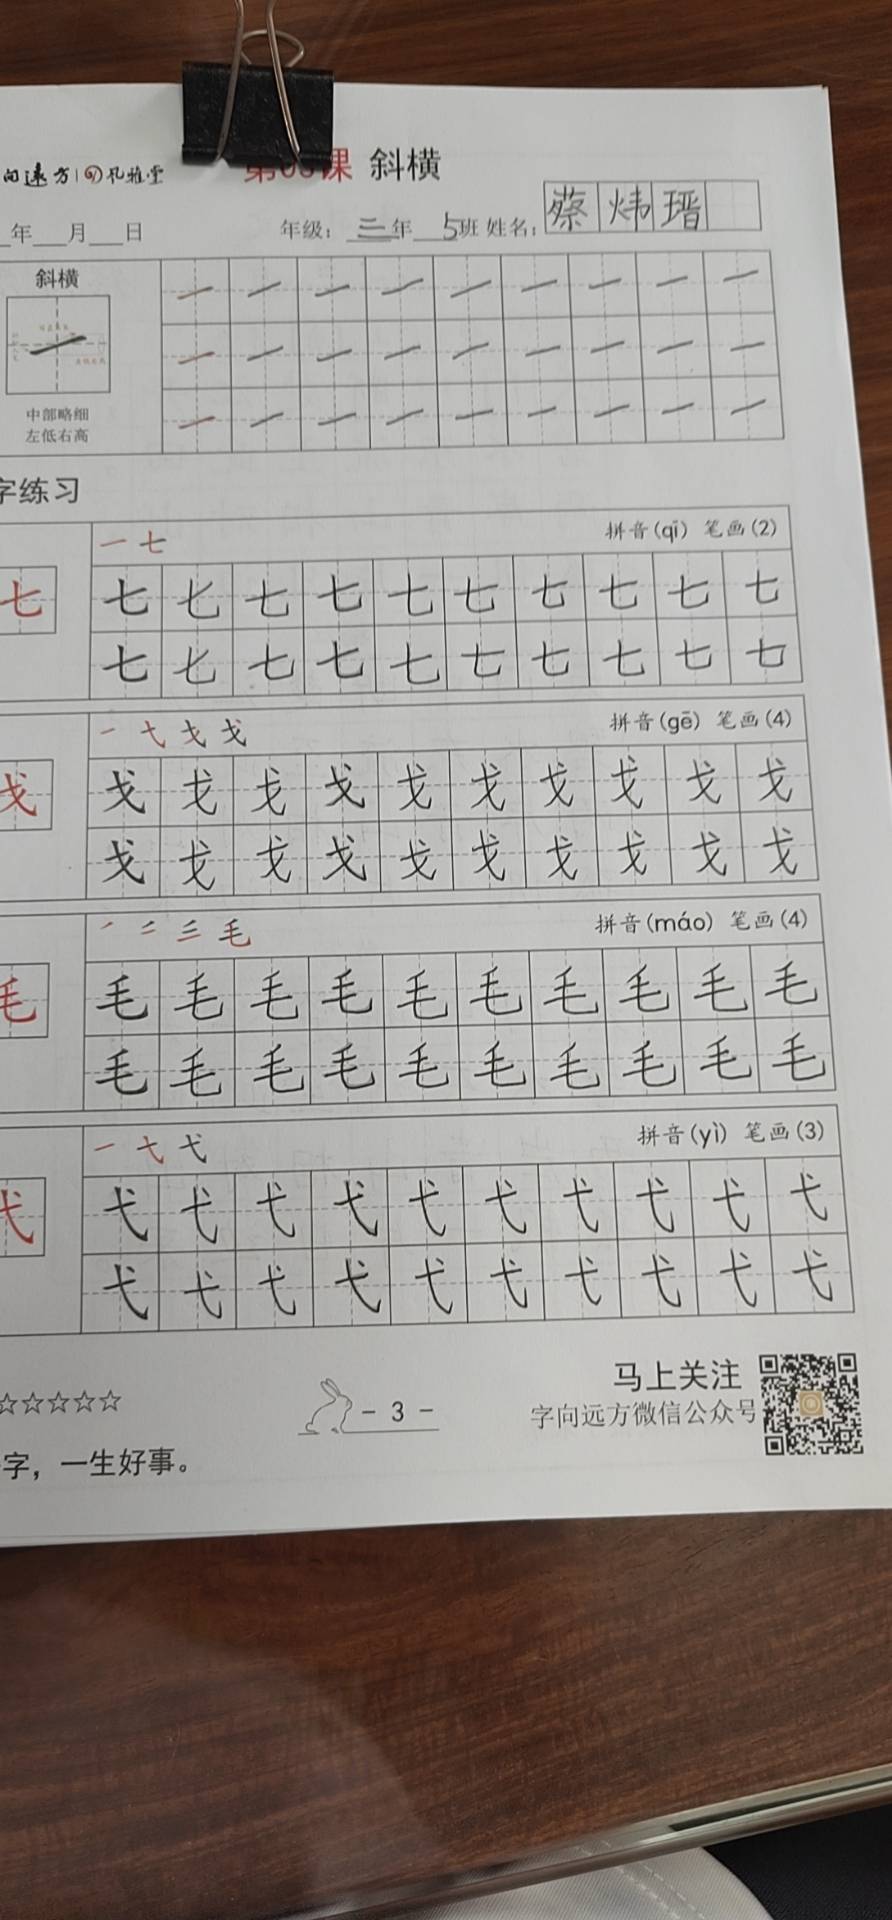 向远方 孔雅堂
课 斜横
年 月 日 年级：三年 5班 姓名：蔡炜瑨
斜横
中部略细
左低右高
字练习
一 七 拼音(qī) 笔画(2)
七 七 七 七 七 七 七 七 七 七 七
七 七 七 七 七 七 七 七 七 七
一 弋 戈 戈 拼音(gē) 笔画(4)
戈 戈 戈 戈 戈 戈 戈 戈 戈 戈 戈
戈 戈 戈 戈 戈 戈 戈 戈 戈 戈
毛 拼音(máo) 笔画(4)
毛 毛 毛 毛 毛 毛 毛 毛 毛 毛 毛
毛 毛 毛 毛 毛 毛 毛 毛 毛 毛
一 弋 弋 拼音(yì) 笔画(3)
弋 弋 弋 弋 弋 弋 弋 弋 弋 弋 弋
弋 弋 弋 弋 弋 弋 弋 弋 弋 弋
☆☆☆☆☆ - 3 - 马上关注
字向远方微信公众号
字，一生好事。